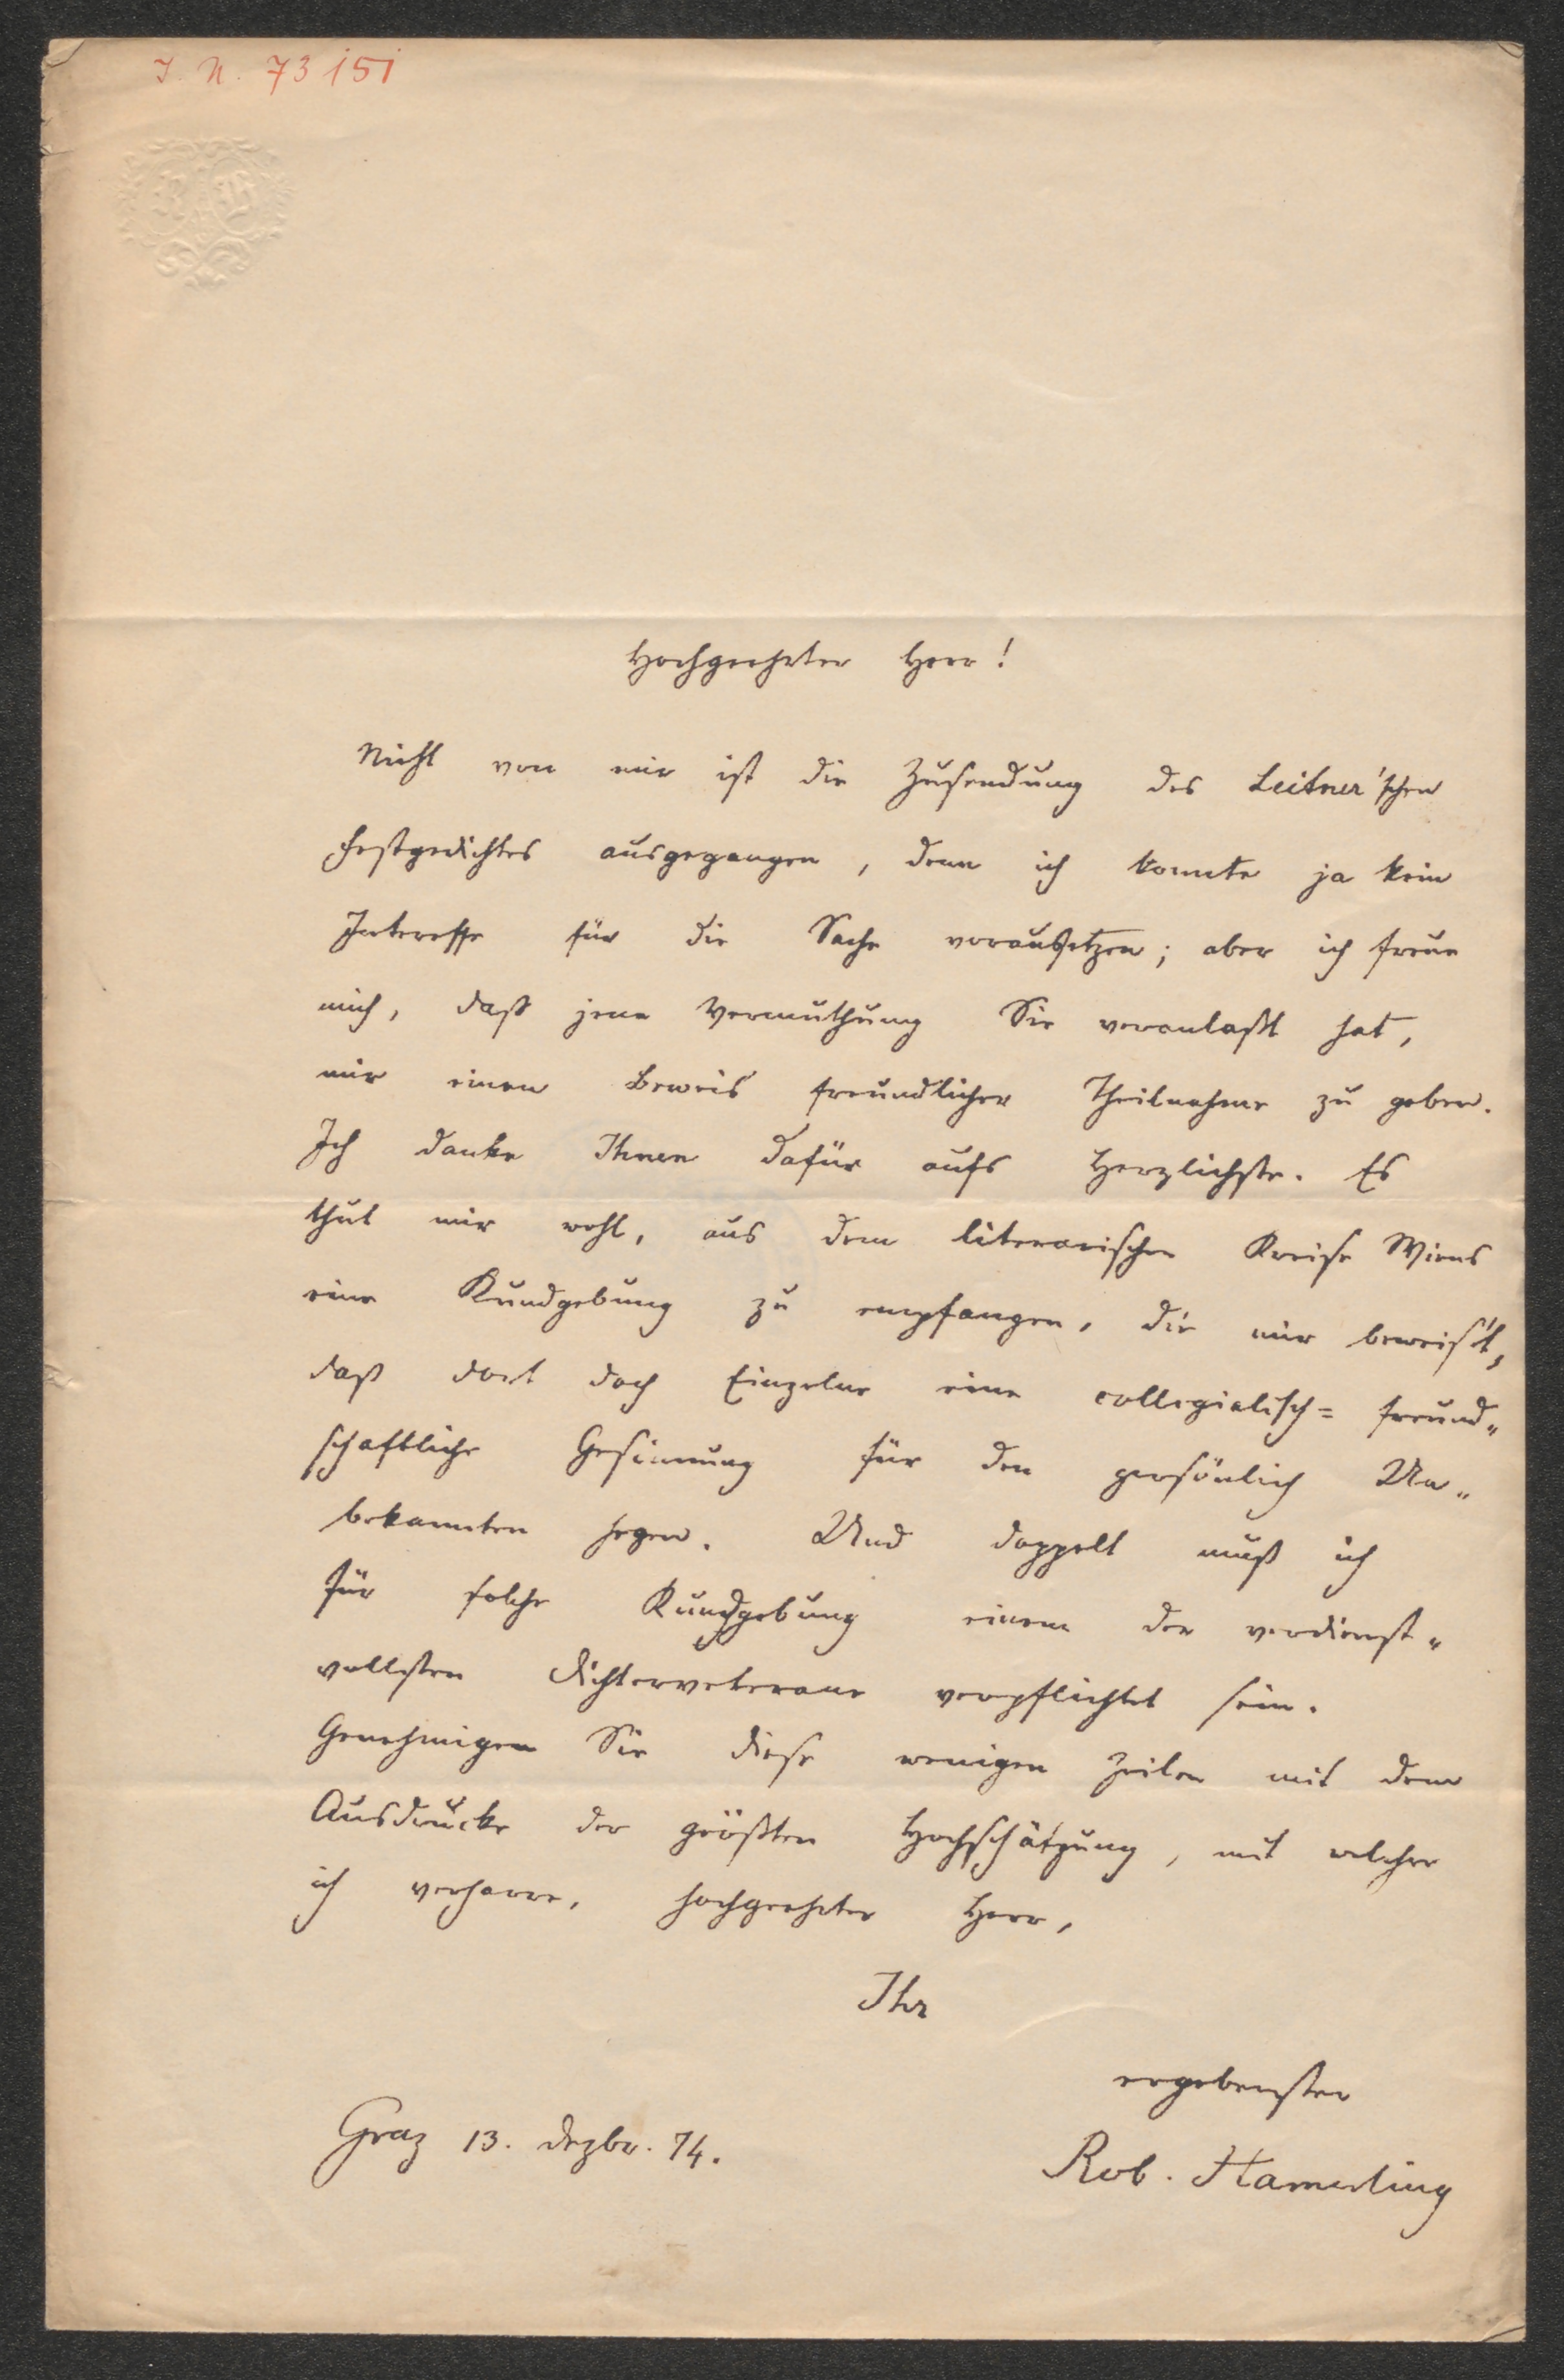 I. N. 73151
Hochgeehrter Herr!
Nicht von mir ist die Zusendung des Leitner'schen
Festgedichtes ausgegangen, denn ich konnte ja kein
Interesse für die Sache voraussetzen; aber ich freue
mich, daß jene Vermuthung Sie veranlaßt hat,
mir einen Beweis freundlicher Theilnahme zu geben.
Ich danke Ihnen dafür aufs Herzlichste. Es
thut mir wohl, aus dem literarischen Kreise Wiens
eine Kundgebung zu empfangen, die mir beweis't,
daß dort doch Einzelne eine collegialisch= freund„
schaftliche Gesinnung für den persönlich Un„
bekannten hegen. Und doppelt muß ich
für solche Kundgebung einem der verdienst„
vollsten Dichterveterane verpflichtet sein.
Genehmigen Sie diese wenigen Zeilen mit dem
Ausdrucke der größten Hochschätzung, mit welcher
ich verharre, hochgeehrter Herr,
Ihr
ergebenster
Graz 13. Dezbr. 74.
Rob. Hamerling